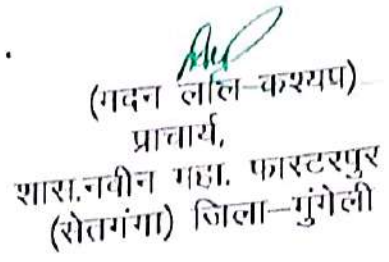 (मदन लाल-कश्यप)
प्राचार्य,
शास.नवीन महा. फास्टरपुर
(सेतगंगा) जिला-मुंगेली